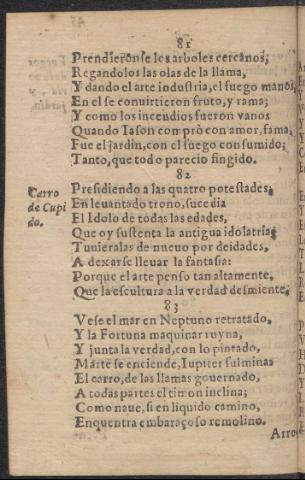 81
Prendieronse los arboles cercanos;
Regandolos las olas de la llama,
Y dando el arte industria, el fuego manos,
En el se conuirtieron fruto, y rama;
Y como los incendios fueron vanos
Quando Iason compró con amor, fama,
Fue el jardin, con el fuego consumido;
Tanto, que todo parecio fingido.
82
Carro
de Cupi
do.
Presidiendo a las quatro potestades,
En leuantado trono, sucedia
El Idolo de todas las edades,
Que oy sustenta la antigua idolatria;
Tuuieralas de nueuo por deidades,
A dexarse lleuar la fantasia:
Porque el arte penso tan altamente,
Que la escultura a la verdad desmiente.
83
Vese el mar en Neptuno retratado,
Y la Fortuna maquinar ruyna,
Y junta la verdad, con lo pintado,
Marte se enciende, Iupiter fulmina
El carro, de las llamas gouernado,
A todas partes el timon inclina;
Como naue, si en liquido camino,
Encuentra embaraçoso remolino.
Arro